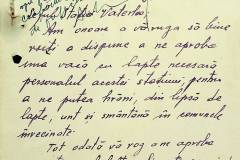 Am onoare a vă ruga să bine
voiți a dispune a ne aproba
una vacă cu lapte necesară
personalul acestei stațiuni, pentru
a ne putea hrăni, din lipsă de
lapte, unt și smântână în comunele
învecinate.
Tot odată vă rog a ne aproba